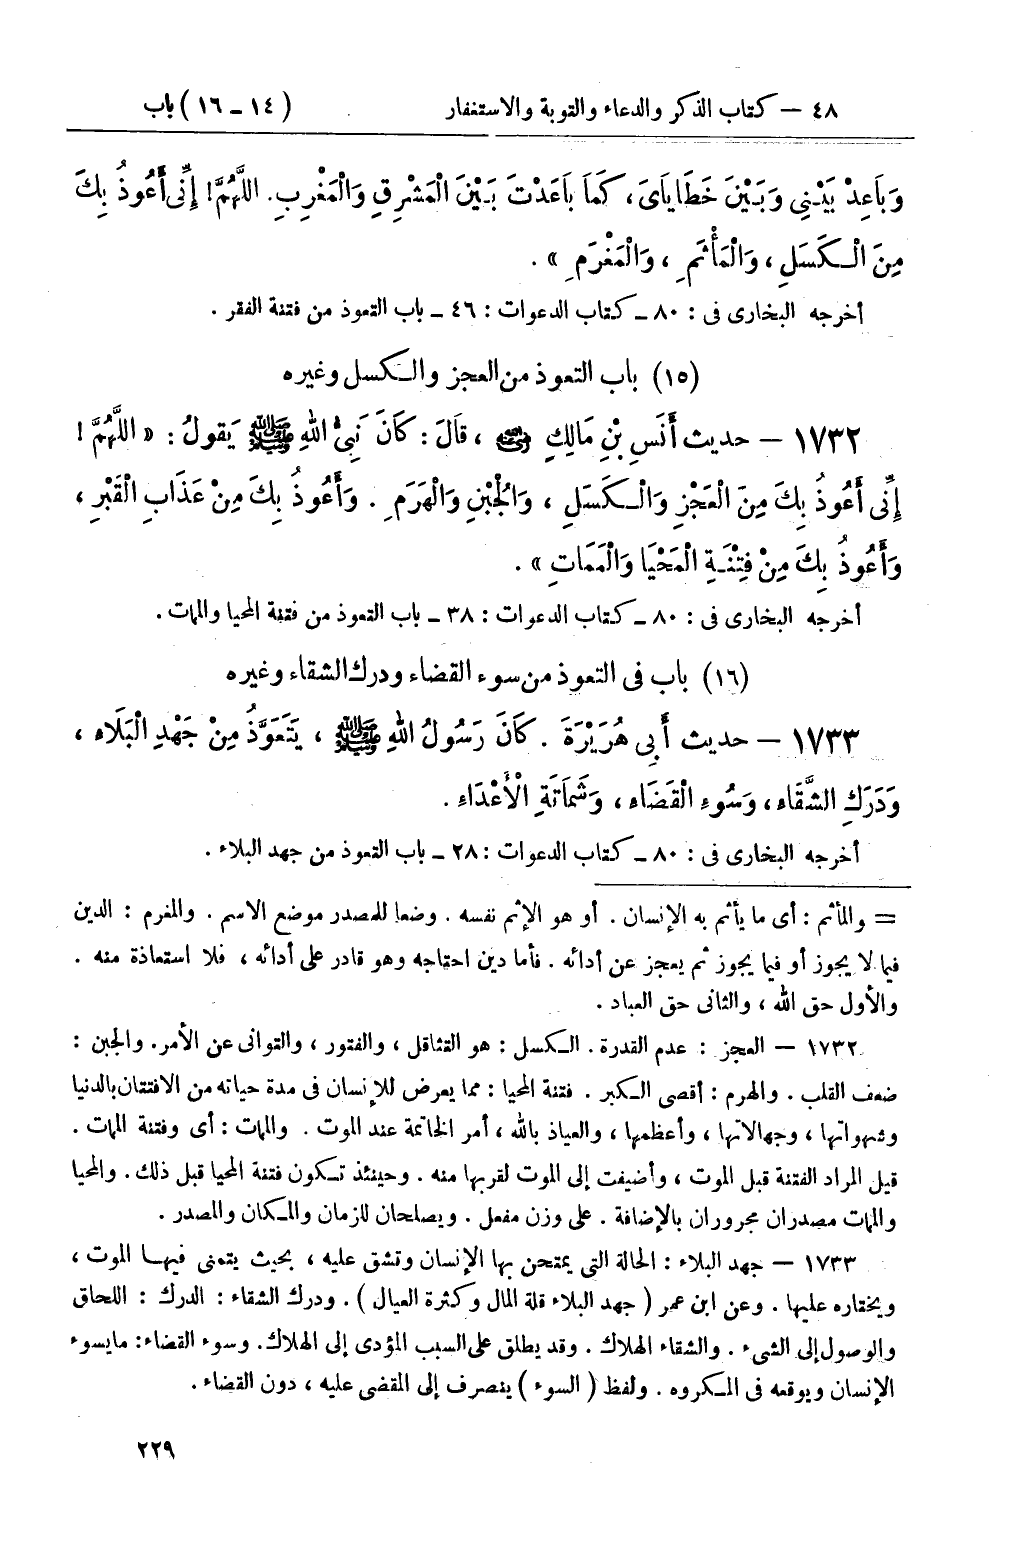 ٤٨ – كتاب الذكر والدعاء والتوبة والاستغفار (١٤ – ١٦) باب
وَبَاعِدْ بَيْنِى وَبَيْنَ خَطَايَاىَ، كَمَا بَاعَدْتَ بَيْنَ الْمَشْرِقِ وَالْمَغْرِبِ. اللَّهُمَّ! إِنِّى أَعُوذُ بِكَ
مِنَ الْكَسَلِ، وَالْمَأْثَمِ، وَالْمَغْرَمِ».
أخرجه البخارى فى: ٨٠ – كتاب الدعوات: ٤٦ – باب التعوذ من فتنة الفقر.
(١٥) باب التعوذ من العجز والكسل وغيره
١٧٣٢ – حديث أَنَسِ بْنِ مَالِكٍ رضي الله عنه، قَالَ: كَانَ نَبِىُّ اللهِ ﷺ يَقُولُ: «اللَّهُمَّ!
إِنِّى أَعُوذُ بِكَ مِنَ الْعَجْزِ وَالْكَسَلِ، وَالْجُبْنِ وَالْهَرَمِ. وَأَعُوذُ بِكَ مِنْ عَذَابِ الْقَبْرِ،
وَأَعُوذُ بِكَ مِنْ فِتْنَةِ الْمَحْيَا وَالْمَمَاتِ».
أخرجه البخارى فى: ٨٠ – كتاب الدعوات: ٣٨ – باب التعوذ من فتنة المحيا والممات.
(١٦) باب فى التعوذ من سوء القضاء ودرك الشقاء وغيره
١٧٣٣ – حديث أَبِى هُرَيْرَةَ. كَانَ رَسُولُ اللهِ ﷺ، يَتَعَوَّذُ مِنْ جَهْدِ الْبَلَاءِ،
وَدَرَكِ الشَّقَاءِ، وَسُوءِ الْقَضَاءِ، وَشَمَاتَةِ الْأَعْدَاءِ.
أخرجه البخارى فى: ٨٠ – كتاب الدعوات: ٢٨ – باب التعوذ من جهد البلاء.
= والمأثم: أى ما يأثم به الإنسان. أو هو الإثم نفسه. وضعا للمصدر موضع الاسم. والمغرم: الدين
فيما لا يجوز أو فيما يجوز ثم يعجز عن أدائه. فأما دين احتاجه وهو قادر على أدائه، فلا استعاذة منه.
والأول حق الله، والثانى حق العباد.
١٧٣٢ – العجز: عدم القدرة. الكسل: هو التثاقل، والفتور، والتوانى عن الأمر. والجبن:
ضعف القلب. والهرم: أقصى الكبر. فتنة المحيا: مما يعرض للإنسان فى مدة حياته من الافتتان بالدنيا
وشهواتها، وجهالاتها، وأعظمها، والعياذ بالله، أمر الخاتمة عند الموت. والممات: أى وفتنة الممات.
قيل المراد الفتنة قبل الموت، وأضيفت إلى الموت لقربها منه. وحينئذ تكون فتنة المحيا قبل ذلك. والمحيا
والممات مصدران مجروران بالإضافة. على وزن مفعل. ويصلحان للزمان والمكان والمصدر.
١٧٣٣ – جهد البلاء: الحالة التى يمتحن بها الإنسان وتشق عليه، بحيث يتمنى فيها الموت،
ويختاره عليها. وعن ابن عمر (جهد البلاء قلة المال وكثرة العيال). ودرك الشقاء: الدرك: اللحاق
والوصول إلى الشىء. والشقاء الهلاك. وقد يطلق على السبب المؤدى إلى الهلاك. وسوء القضاء: مايسوء
الإنسان ويوقعه فى المكروه. ولفظ (السوء) ينصرف إلى المقضى عليه، دون القضاء.
٢٢٩